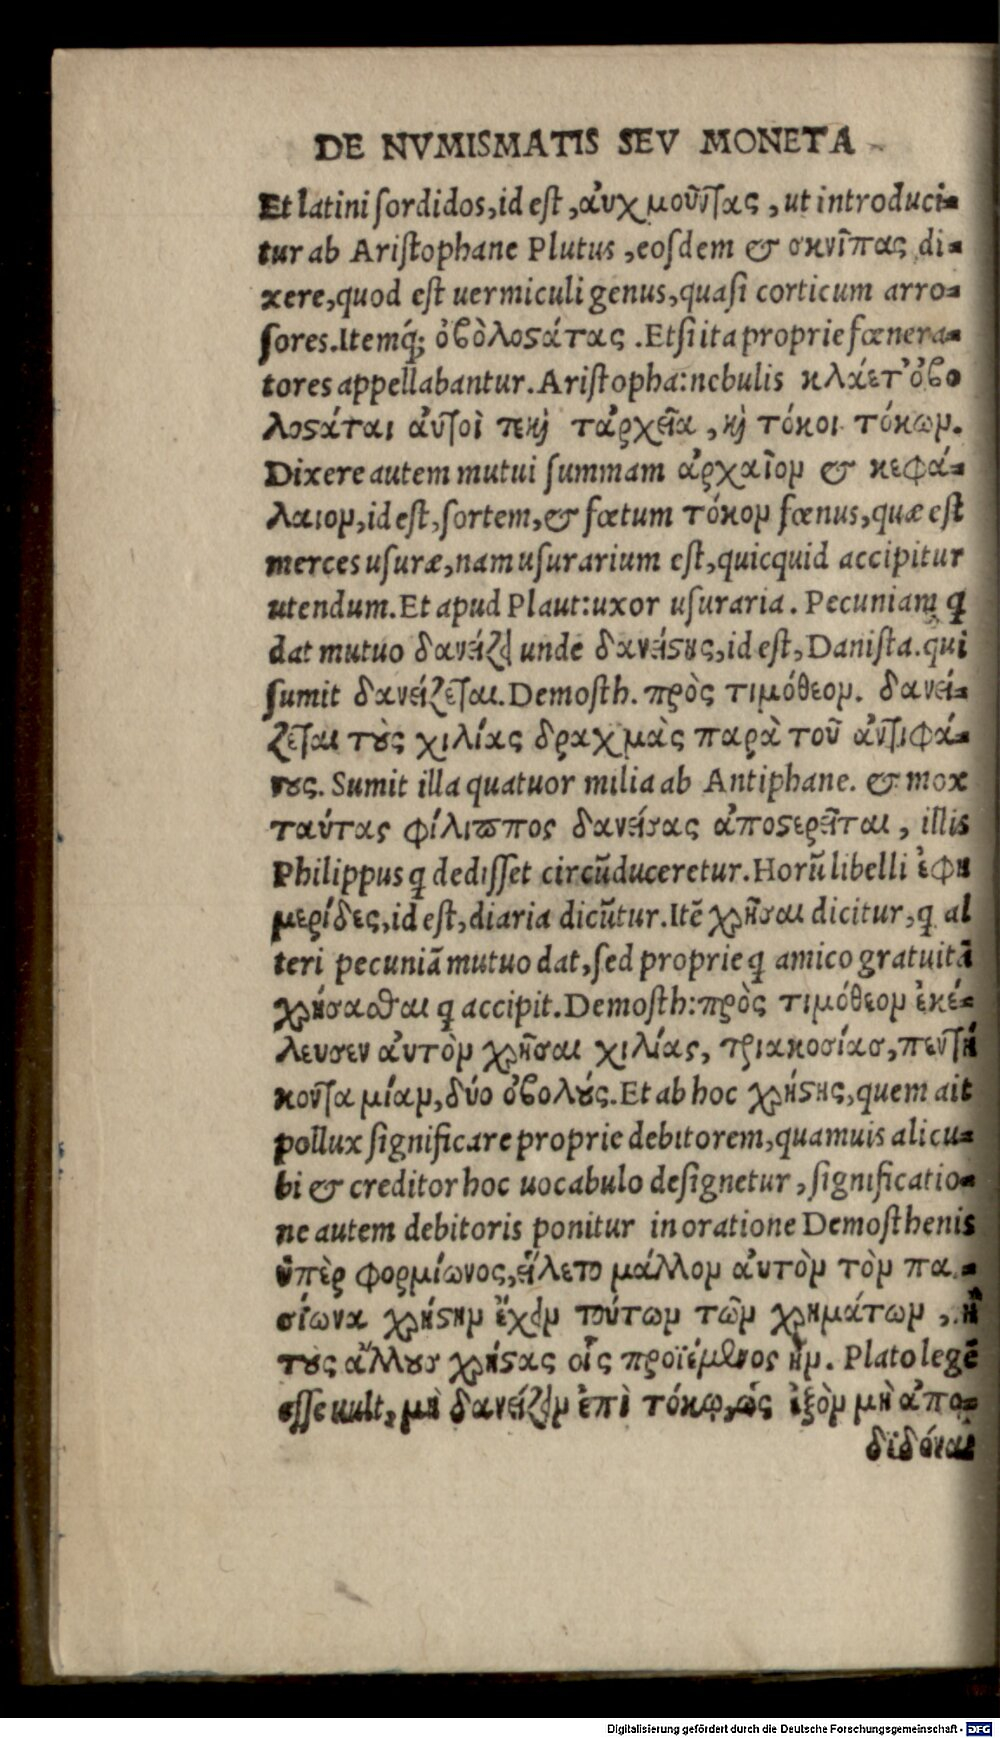 DE NVMISMATIS SEV MONETA
Et latini sordidos, id est, αὐχμοῦντας, ut introduci-
tur ab Aristophane Plutus, eosdem & σκνῖπας di-
xere, quod est uermiculi genus, quasi corticum arro-
sores. Itemq́; ὀβὸλοϛάτας. Etsi ita proprie fœnera-
tores appellabantur. Aristopha: nebulis κλάετ' ὀβο
λοϛάται αὐτοὶ τε καὶ τἀρχεῖα, καὶ τόκοι τόκωμ.
Dixere autem mutui summam ἀρχαῖομ & κεφά-
λαιομ, id est, sortem, & fœtum τόκομ fœnus, quæ est
merces usuræ, nam usurarium est, quicquid accipitur
utendum. Et apud Plaut: uxor usuraria. Pecuniam q
dat mutuo δανείζει unde δανείϛης, id est, Danista. qui
sumit δανείζεται. Demosth. πρὸς τιμόθεομ. δανεί-
ζεται τοὺς χιλίας δραχμὰς παρὰ τοῦ ἀντιφά-
νους. Sumit illa quatuor milia ab Antiphane. & mox
ταύτας φίλιππος δανείσας ἀποϛερεῖται, illis
Philippus q dedisset circũduceretur. Horũ libelli ἐφη
μερίδες, id est, diaria dicũtur. Itẽ χρῆσαι dicitur, q al
teri pecuniã mutuo dat, sed proprie q amico gratuitã
χρήσασθαι q accipit. Demosth: πρὸς τιμόθεομ ἐκέ-
λευσεν αὐτὸμ χρῆσαι χιλίας, τριακοσίασ, πεντή
κοντα μίαμ, δύο ὀβολούς. Et ab hoc χρήϛης, quem ait
pollux significare proprie debitorem, quamuis alicu-
bi & creditor hoc uocabulo designetur, significatio-
ne autem debitoris ponitur in oratione Demosthenis
ὑπὲρ φορμίωνος, εἵλετο μάλλομ αὐτὸμ τὸμ πα-
σίωνα χρήϛημ ἔχειμ τούτωμ τῶμ χρημάτωμ, ἢ
τους ἄλλουσ χρήϛας οἷς προϊέμενος ἦμ. Plato legẽ
esse uult, μὴ δανείζειμ ἐπὶ τόκῳ, ὡς ἐξὸμ μὴ ἀπο-
διδόναι
Digitalisierung gefördert durch die Deutsche Forschungsgemeinschaft - DFG